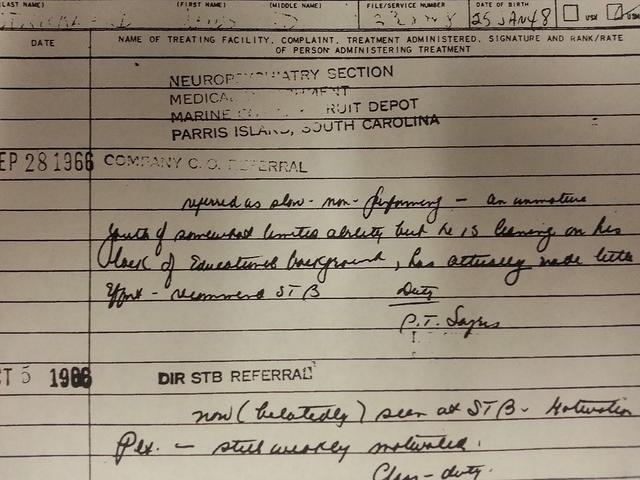 LAST NAME) (FIRST NAME) (MIDDLE NAME) FILE/SERVICE NUMBER DATE OF BIRTH
25 JAN 48 USN
DATE NAME OF TREATING FACILITY, COMPLAINT, TREATMENT ADMINISTERED, SIGNATURE AND RANK/RATE
OF PERSON ADMINISTERING TREATMENT
NEUROPSYCHIATRY SECTION
MEDICAL
MARINE RUIT DEPOT
PARRIS ISLAND, SOUTH CAROLINA
EP 28 1966 COMPANY C.O. REFERRAL
referred as slow - non-performing - an immature
youth of somewhat limited ability but he is leaning on his
lack of educational background, has actually made little
effort - recommend STB Duty
P.T.
CT 5 1966 DIR STB REFERRAL
now (belatedly) seen at STB - Motivation
Plt. - still weakly motivated.
duty.